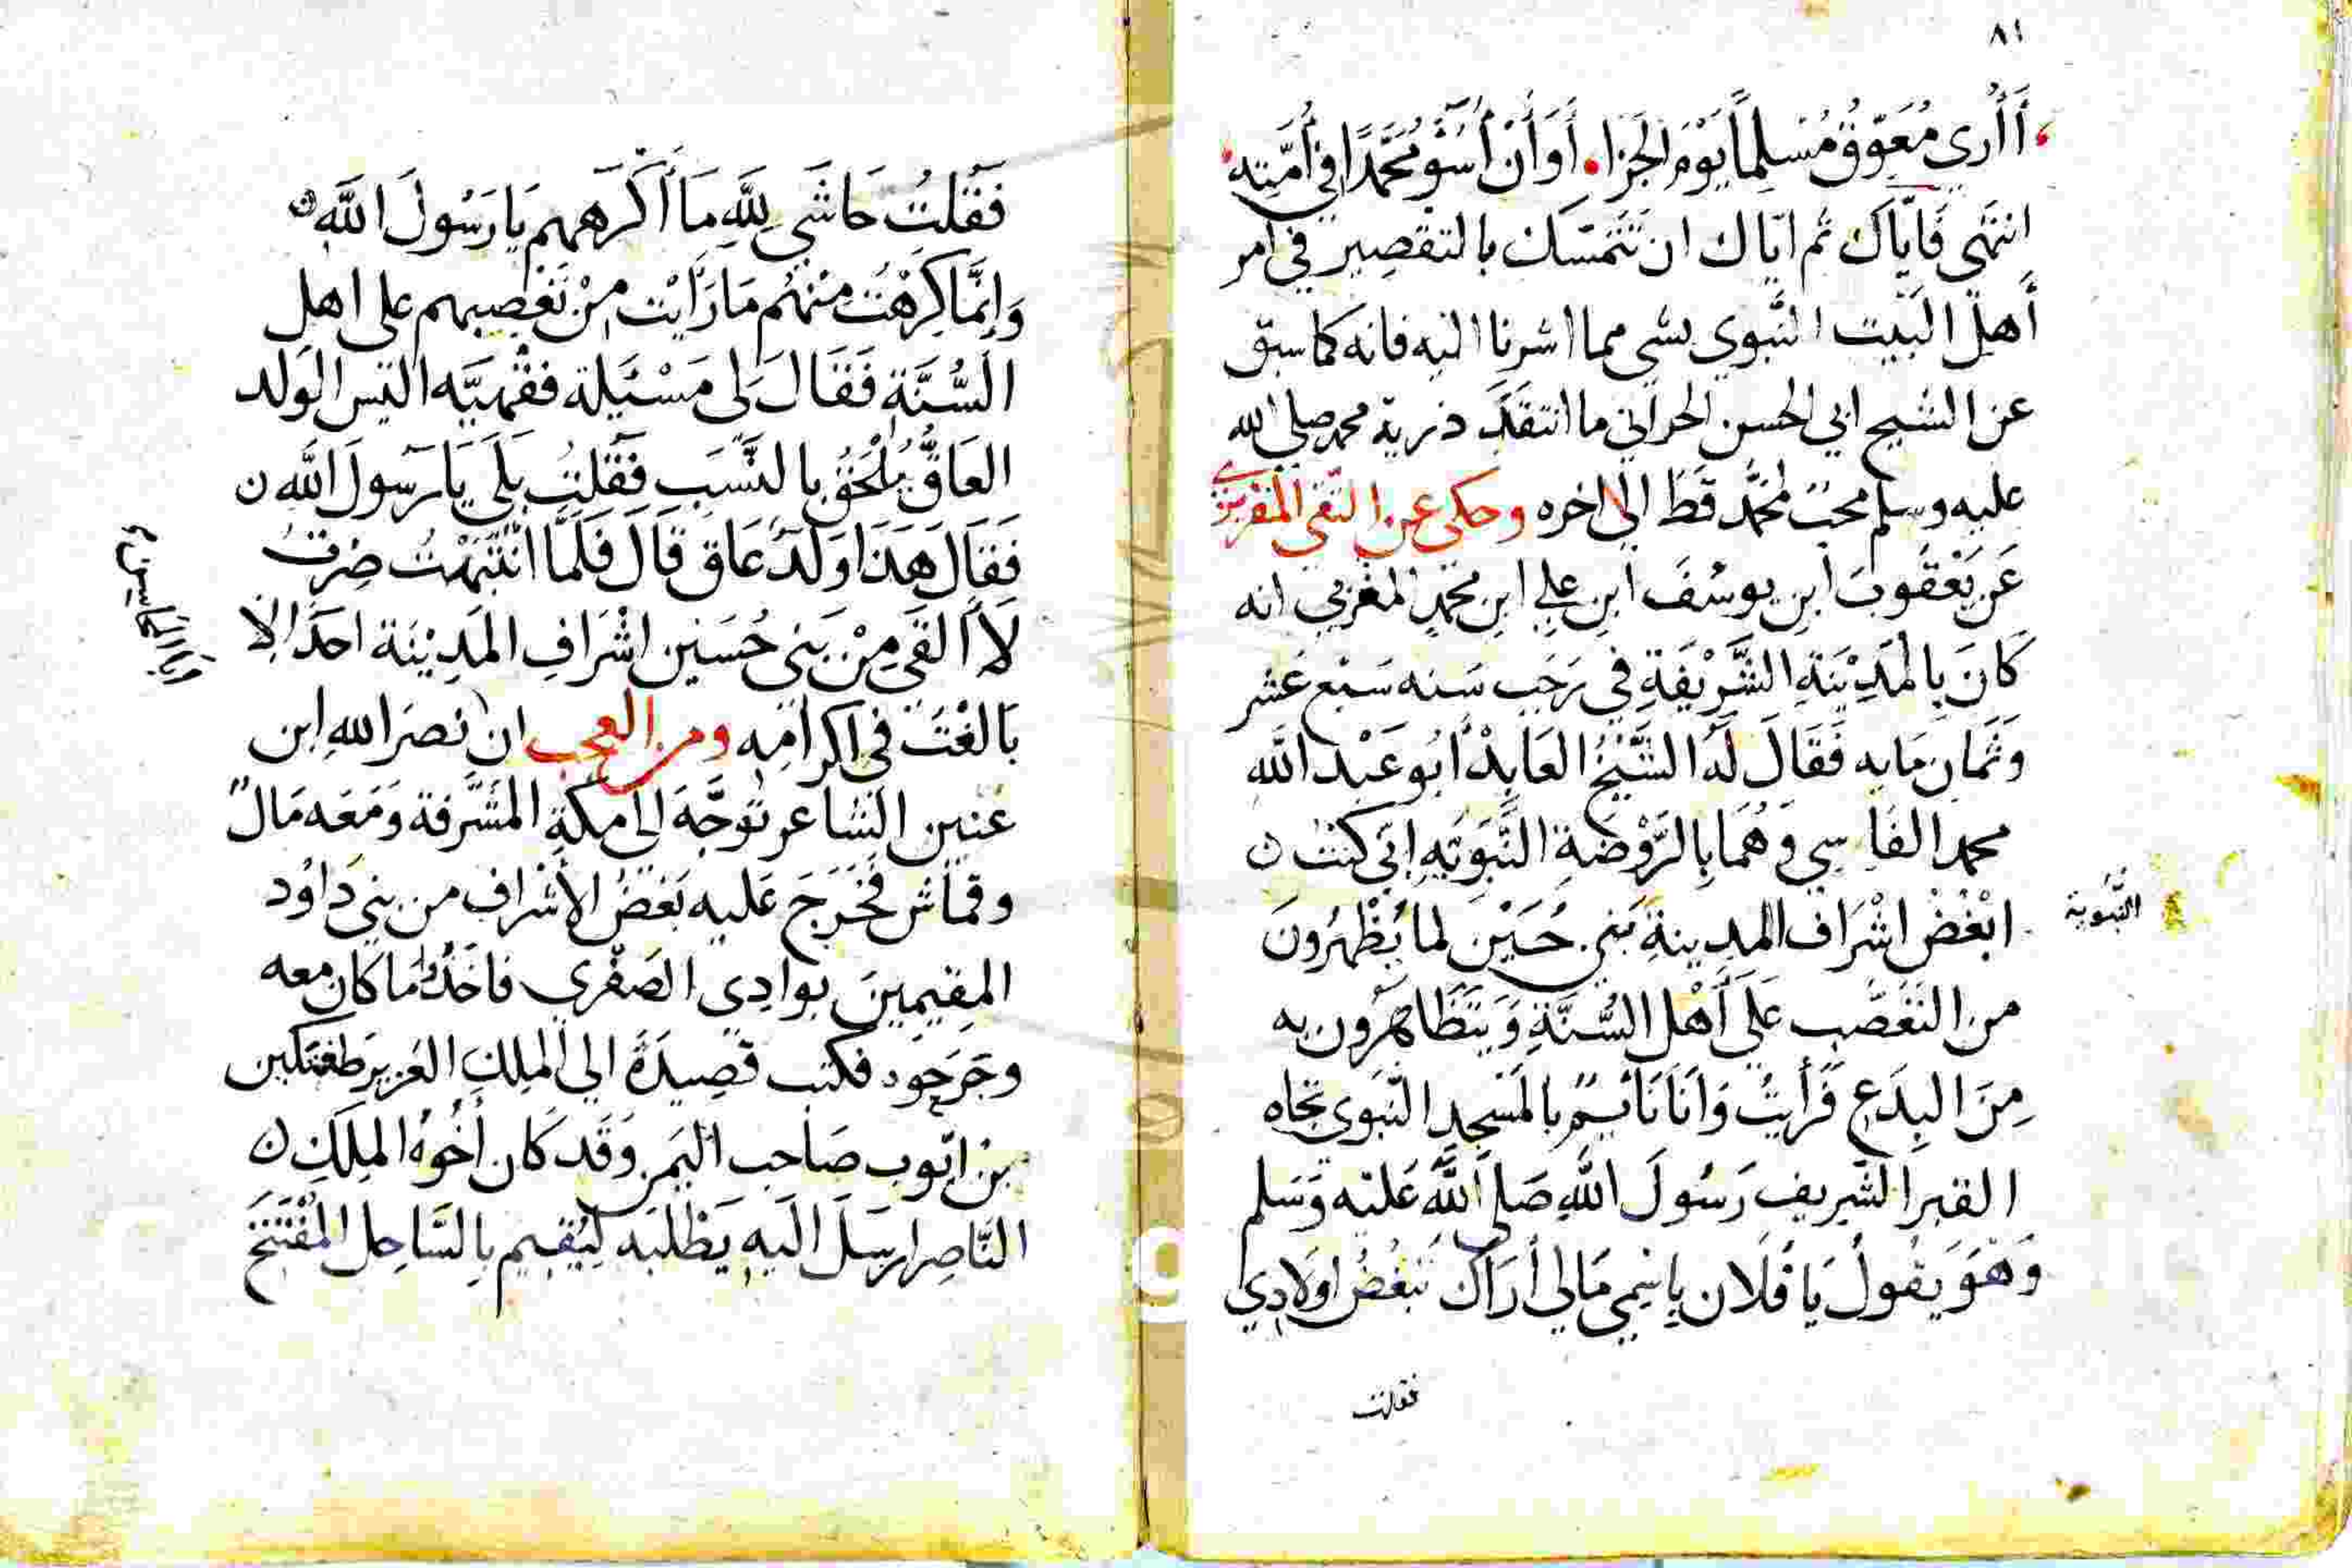 ٨١
أَأُرى مُعَوِّقُ مُسْلِماً يَوْمَ الجَزَا أَوَأَنْ أَسُوْءُ مُحَمَّدًا فِي أُمَّتِهِ
انتهَى فَايَّاكَ ثم اياك ان تَتَمَسَّك بالتقصِير في امر
أَهلِ البَيت النَّبوي بشي مما اشرنا اليه فانه كما سبق
عن الشيح ابي الحسن الحراني ما انتقَدَ ذرية محمد صلي الله
عليه وسلم محبّ لمحَّمد قَط الي اخره وحكي عن التقي المقريزي
عَن يَعْقُوبَ ابنِ يوسُفَ ابنِ علِي ابنِ محمّدٍ المغربي انه
كَانَ بِالمَدِيْنَةِ الشَّرِيْفَةِ في رَجَبِ سَنه سَبْع عَشر
وَثَمَان مَايه فَقَالَ لَهُ الشَّيْخُ العَابِدُ أبُو عَبْد اللَّه
محمد الفَاسِي وَهُمَا بِالرَّوْضَةِ النَّبَوَيَّهِ اِنّي كنت ن
النَّبَوية
ابْغُضُ اشْرَاف المدِينةِ بَني حُسَيْن لما يُظْهِرُونَ
من التَّعَصُّبِ عَلَى أَهْلِ السُّنَّةِ وَيَتَظَاهَرُون به
مِنَ البِدَع فَرَأَيتُ وَأَنَا نَائِمٌ بالمَسْجِدِ النَّبَوي تجاه
القبر الشرِيف رَسُولَ اللَّهِ صَلى اللَّهُ عَليْه وَسَلم
وَهُوَ يَقُولُ يَا فُلَان بِاسْمِي مَا لي أَرَاكَ تَبغُضُ اولَادِي
فقلت
فَقُلتُ حَاشَى لِلَّهِ مَا أَكْرَههم يَا رَسُولَ اللَّه ن
وَاِنَّمَا كرِهْتُ مِنْهُم مَا رَاَيْت مِنْ تَعَصبهم على اهلِ
السُّنَّةِ فَقَالَ لى مَسْئَيلة فقْهيَّه اليْسَ الوَلد
العَاقُّ يُلْحَقُ بالنَّسَبِ فَقُلتُ بَلَى يَا رَسولَ اللَّه ن
فَقَالَ هَذَا وَلَدٌ عَاق قَالَ فَلَمَّا انْتَبَهْتُ صِرتُ
لَا اَلقَى مِنْ بَني حُسَين اشْرَافِ المَدِيْنَة احَدًا الا
بَالغْتُ في اكرامِه ومن العجب ان نصَر الله ابن
عنين الشاعر توَجَّهَ الى مكةِ المشَّرفة وَمَعَه مَالٌ
وقماش فخَرَجَ عَليه بَعْضُ الأشراف من بنِي دَاوُد
المقِيمِينَ بوادِى الصَفْرِي فاخَذُوا مَا كَان معه
وجَرَحوه فكتب قصِيدَةً الي الملِكِ العَزيز طغتكين
بن ايّوب صَاحِب اليَمن وَقَد كَان أخُوهُ الملِكِ ن
النَّاصِر ارسَلَ اليه يَطْلبَه لِيُقيم بِالسَّاحِل المُفْتَتَحِ